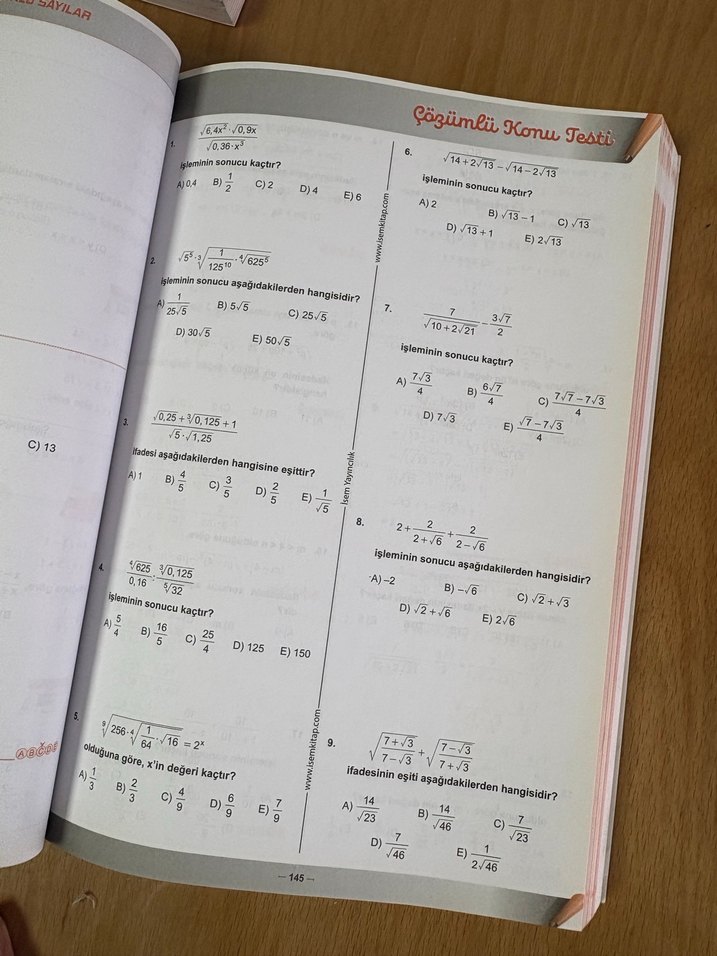 SAYILAR
C) 13
A B C D E
Çözümlü Konu Testi
1. √(6,4x²)·√(0,9x) / √(0,36·x³)
işleminin sonucu kaçtır?
A) 0,4 B) 1/2 C) 2 D) 4 E) 6
2. √(5⁵)·³√(1/125¹⁰·⁴√(625⁵))
işleminin sonucu aşağıdakilerden hangisidir?
A) 1/(25√5) B) 5√5 C) 25√5
D) 30√5 E) 50√5
3. (√(0,25)+³√(0,125)+1) / (√5·√(1,25))
ifadesi aşağıdakilerden hangisine eşittir?
A) 1 B) 4/5 C) 3/5 D) 2/5 E) 1/√5
4. ⁴√625/0,16 · ³√(0,125)/⁵√32
işleminin sonucu kaçtır?
A) 5/4 B) 16/5 C) 25/4 D) 125 E) 150
5. ⁹√(256·⁴√(1/64·√16)) = 2ˣ
olduğuna göre, x'in değeri kaçtır?
A) 1/3 B) 2/3 C) 4/9 D) 6/9 E) 7/9
www.isemkitap.com
İsem Yayıncılık
www.isemkitap.com
6. √(14+2√13) − √(14−2√13)
işleminin sonucu kaçtır?
A) 2 B) √13 − 1 C) √13
D) √13 + 1 E) 2√13
7. 7/√(10+2√21) − 3√7/2
işleminin sonucu kaçtır?
A) 7√3/4 B) 6√7/4 C) (7√7−7√3)/4
D) 7√3 E) (√7−7√3)/4
8. 2 + 2/(2+√6) + 2/(2−√6)
işleminin sonucu aşağıdakilerden hangisidir?
A) −2 B) −√6 C) √2+√3
D) √2+√6 E) 2√6
9. √((7+√3)/(7−√3)) + √((7−√3)/(7+√3))
ifadesinin eşiti aşağıdakilerden hangisidir?
A) 14/√23 B) 14/√46 C) 7/√23
D) 7/√46 E) 1/(2√46)
– 145 –